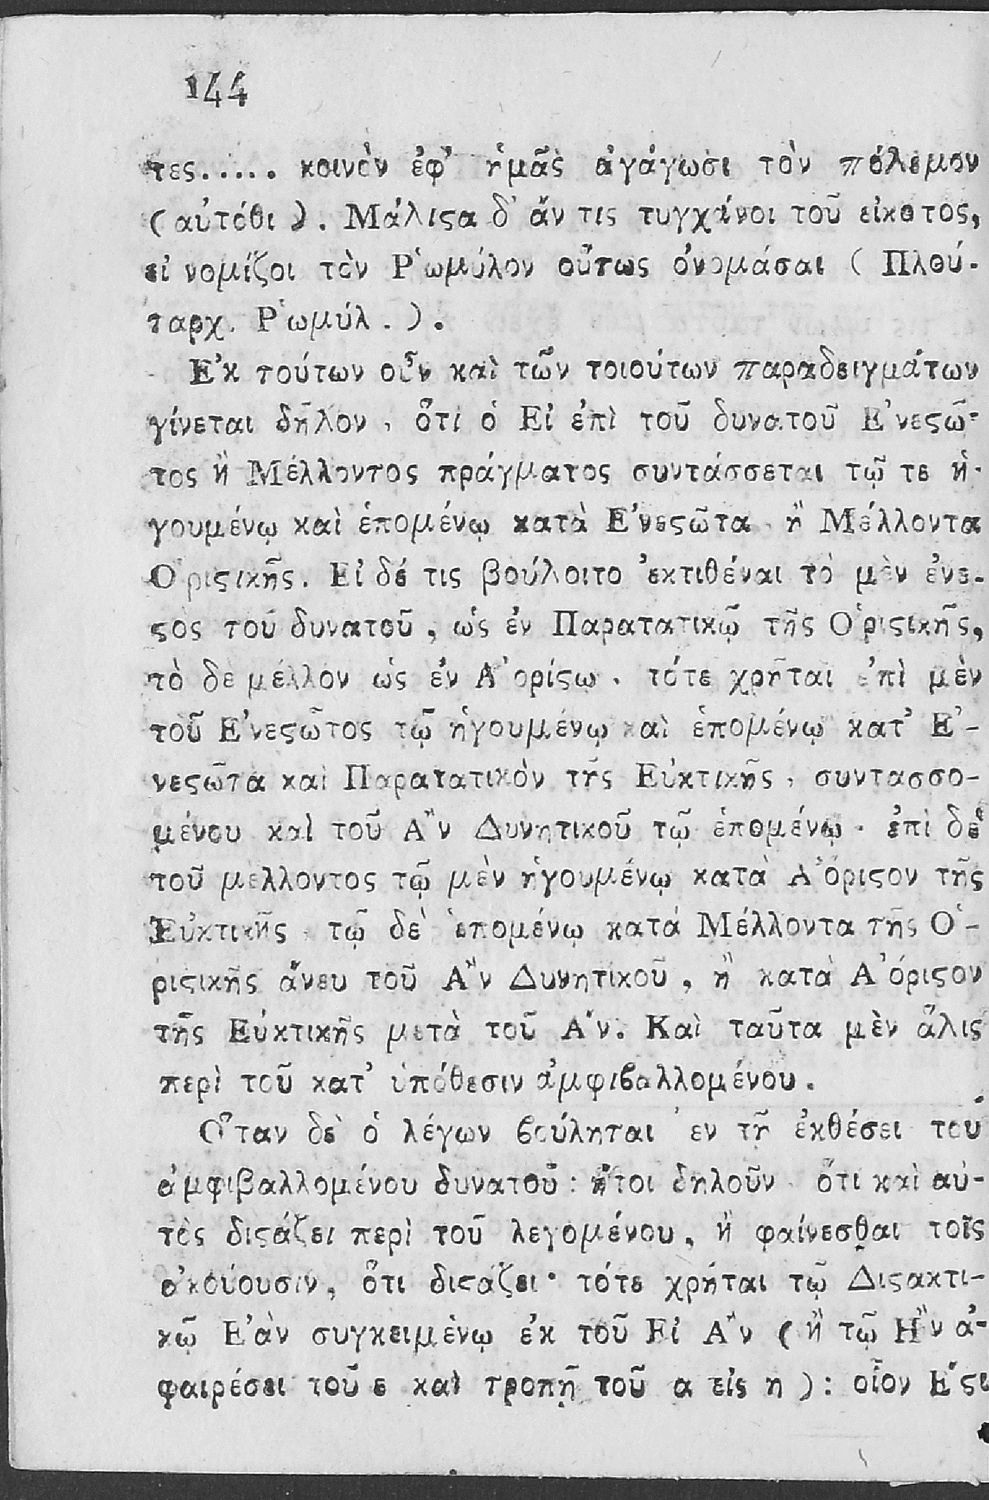 144
τες..... κοινὸν ἐφ' ἡμᾶς ἀγάγωσι τὸν πόλεμον
(αὐτόθι). Μάλιϛα δ' ἄν τις τυγχάνοι τοῦ εἰκότος,
εἰ νομίζοι τὸν Ρ'ωμύλον οὕτως ὀνομάσαι (Πλού-
ταρχ. Ρ'ωμύλ.).
Ε'κ τούτων οὖν καὶ τῶν τοιούτων παραδειγμάτων
γίνεται δῆλον, ὅτι ὁ Εἰ ἐπὶ τοῦ δυνατοῦ Ε'νεϛῶ-
τος ἢ Μέλλοντος πράγματος συντάσσεται τῷ τε ἡ-
γουμένῳ καὶ ἑπομένῳ κατὰ Ε'νεϛῶτα ἢ Μέλλοντα
Ο'ριϛικῆς. Εἰ δέ τις βούλοιτο ἐκτιθέναι τὸ μὲν ἐνε-
ϛὸς τοῦ δυνατοῦ, ὡς ἐν Παρατατικῷ τῆς Ο'ριϛικῆς,
τὸ δὲ μέλλον ὡς ἐν Α'ορίϛῳ. τότε χρῆται ἐπὶ μὲν
τοῦ Ε'νεϛῶτος τῷ ἡγουμένῳ καὶ ἑπομένῳ κατ' Ε'-
νεϛῶτα καὶ Παρατατικὸν τῆς Εὐκτικῆς, συντασσο-
μένου καὶ τοῦ Α'`ν Δυνητικοῦ τῷ ἑπομένῳ. ἐπὶ δὲ
τοῦ μέλλοντος τῷ μὲν ἡγουμένῳ κατὰ Α'όριϛον τῆς
Εὐκτικῆς τῷ δὲ ἑπομένῳ κατὰ Μέλλοντα τῆς Ο'-
ριϛικῆς ἄνευ τοῦ Α'`ν Δυνητικοῦ, ἢ κατὰ Α'όριϛον
τῆς Εὐκτικῆς μετὰ τοῦ Α'`ν. Καὶ ταῦτα μὲν ἅλις
περὶ τοῦ κατ' ὑπόθεσιν ἀμφιβαλλομένου.
Ο'´ταν δὲ ὁ λέγων βούληται ἐν τῇ ἐκθέσει τοῦ
ἀμφιβαλλομένου δυνατοῦ: ἤτοι δηλοῦν ὅτι καὶ αὐ-
τὸς διϛάζει περὶ τοῦ λεγομένου, ἢ φαίνεσθαι τοῖς
ἀκούουσιν, ὅτι διϛάζει· τότε χρῆται τῷ Διϛακτι-
κῷ Ε'ὰν συγκειμένῳ ἐκ τοῦ Εἰ Α'`ν (ἢ τῷ Η'`ν ἀ-
φαιρέσει τοῦ ε καὶ τροπῇ τοῦ α εἰς η): οἷον Ε'´ϛι